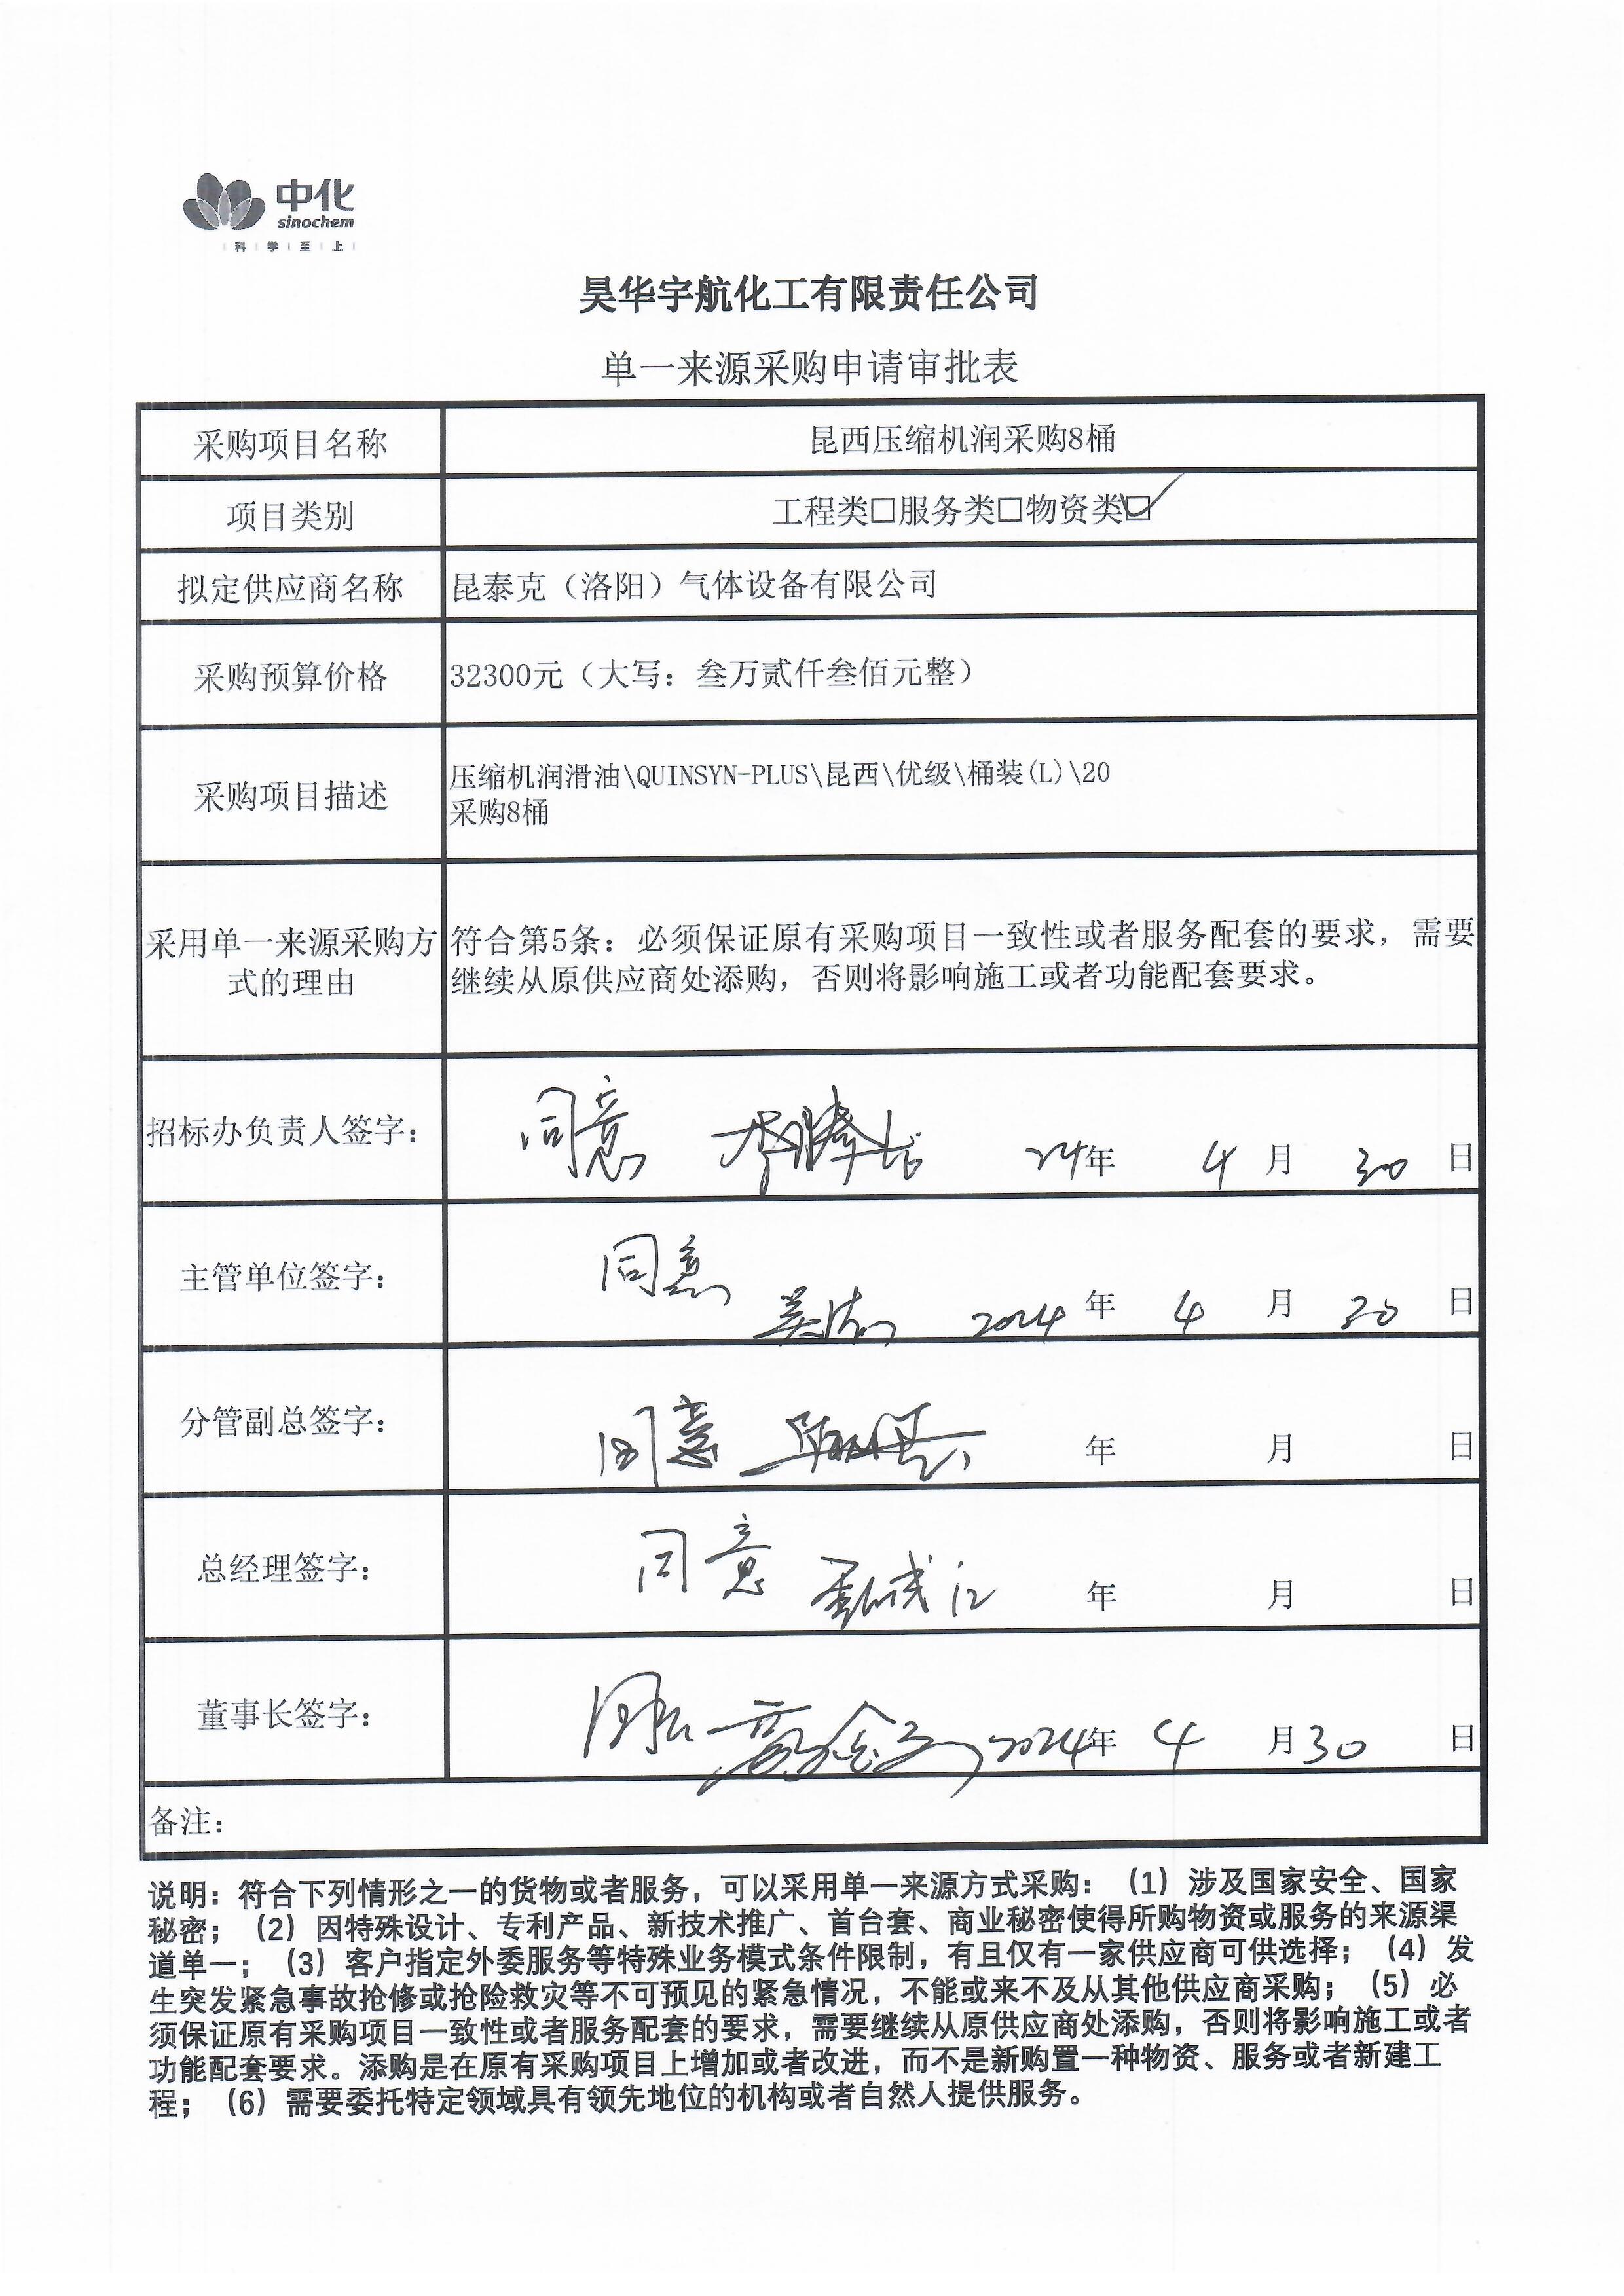 中化
sinochem
科 学 至 上
昊华宇航化工有限责任公司
单一来源采购申请审批表
采购项目名称
昆西压缩机润采购8桶
项目类别
工程类□服务类□物资类☑
拟定供应商名称
昆泰克（洛阳）气体设备有限公司
采购预算价格
32300元（大写：叁万贰仟叁佰元整）
采购项目描述
压缩机润滑油\QUINSYN-PLUS\昆西\优级\桶装(L)\20
采购8桶
采用单一来源采购方
式的理由
符合第5条：必须保证原有采购项目一致性或者服务配套的要求，需要
继续从原供应商处添购，否则将影响施工或者功能配套要求。
招标办负责人签字：
同意 24年 4 月 30 日
主管单位签字：
同意 2024 年 4 月 30 日
分管副总签字：
同意 年 月 日
总经理签字：
同意 年 月 日
董事长签字：
同意 2024年 4 月 30 日
备注：
说明：符合下列情形之一的货物或者服务，可以采用单一来源方式采购：（1）涉及国家安全、国家
秘密；（2）因特殊设计、专利产品、新技术推广、首台套、商业秘密使得所购物资或服务的来源渠
道单一；（3）客户指定外委服务等特殊业务模式条件限制，有且仅有一家供应商可供选择；（4）发
生突发紧急事故抢修或抢险救灾等不可预见的紧急情况，不能或来不及从其他供应商采购；（5）必
须保证原有采购项目一致性或者服务配套的要求，需要继续从原供应商处添购，否则将影响施工或者
功能配套要求。添购是在原有采购项目上增加或者改进，而不是新购置一种物资、服务或者新建工
程；（6）需要委托特定领域具有领先地位的机构或者自然人提供服务。